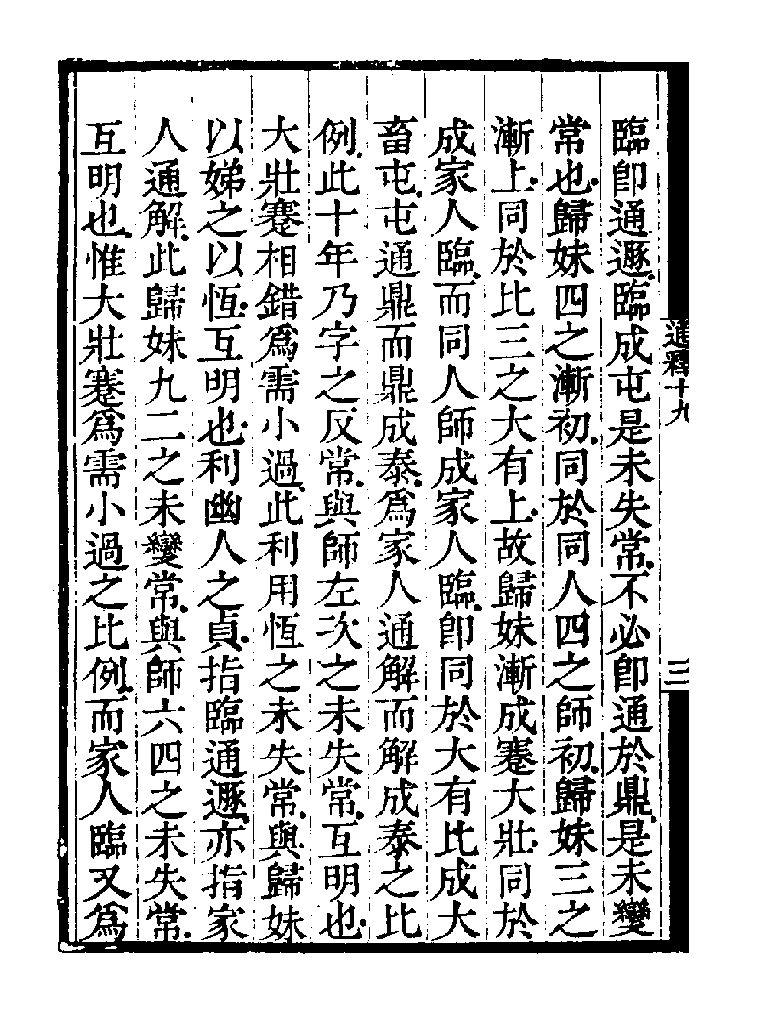 臨卽通遯臨成屯是未失常不必卽通於鼎是未變
常也歸妹四之漸初同於同人四之師初歸妹三之
漸上同於比三之大有上故歸妹漸成蹇大壯同於
成家人臨而同人師成家人臨卽同於大有比成大
畜屯屯通鼎而鼎成泰爲家人通解而解成泰之比
例此十年乃字之反常與師左次之未失常互明也
大壯蹇相錯爲需小過此利用恆之未失常與歸妹
以娣之以恆互明也利幽人之貞指臨通遯亦指家
人通解此歸妹九二之未變常與師六四之未失常
互明也惟大壯蹇爲需小過之比例而家人臨又爲
通釋十九
三